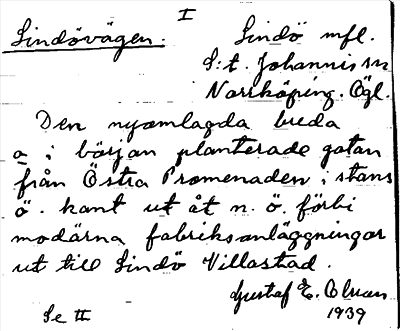 I
Lindövägen. Lindö mfl.
S:t. Johannis sn
Norrköping. Ögl.
Den nyomlagda breda
a i början planterade gatan
från Östra Promenaden i stans
ö. kant ut åt n. ö. förbi
modärna fabriksanläggningar
ut till Lindö Villastad.
Gustaf E.
Se II 1939